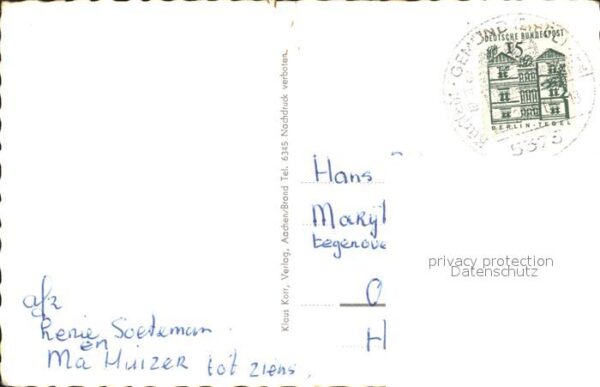 DEUTSCHE BUNDESPOST
15
BERLIN-TEGEL
GEMÜND (EIFEL)
5373
Klaus Korr, Verlag, Aachen/Brand Tel. 6345 Nachdruck verboten.
Hans
Maryl
tegenove
O
H
privacy protection
Datenschutz
afz
Renie Soeteman
en
Ma Huizer tot ziens.